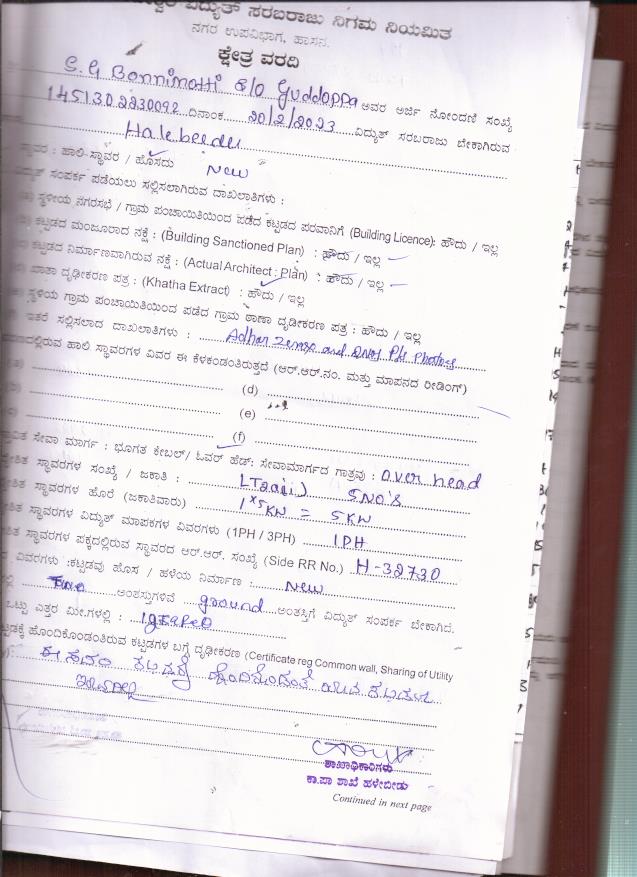 ವಿದ್ಯುತ್ ಸರಬರಾಜು ನಿಗಮ ನಿಯಮಿತ
ನಗರ ಉಪವಿಭಾಗ, ಹಾಸನ.
ಕ್ಷೇತ್ರ ವರದಿ
S. G Bonnimatti S/O Guddappa ಅವರ ಅರ್ಜಿ ನೋಂದಣಿ ಸಂಖ್ಯೆ
1451302230092 ದಿನಾಂಕ 20/2/2023 ವಿದ್ಯುತ್ ಸರಬರಾಜು ಬೇಕಾಗಿರುವ
Halebeedu
ಸ್ಥಾವರ : ಹಾಲಿ ಸ್ಥಾವರ / ಹೊಸದು New
ವಿದ್ಯುತ್ ಸಂಪರ್ಕ ಪಡೆಯಲು ಸಲ್ಲಿಸಲಾಗಿರುವ ದಾಖಲಾತಿಗಳು :
ಸ್ಥಳೀಯ ನಗರಸಭೆ / ಗ್ರಾಮ ಪಂಚಾಯಿತಿಯಿಂದ ಪಡೆದ ಕಟ್ಟಡದ ಪರವಾನಿಗೆ (Building Licence): ಹೌದು / ಇಲ್ಲ
ಕಟ್ಟಡದ ಮಂಜೂರಾದ ನಕ್ಷೆ : (Building Sanctioned Plan) : ಹೌದು / ಇಲ್ಲ
ಕಟ್ಟಡದ ನಿರ್ಮಾಣವಾಗಿರುವ ನಕ್ಷೆ : (Actual Architect : Plan) : ಹೌದು / ಇಲ್ಲ
ಖಾತಾ ದೃಢೀಕರಣ ಪತ್ರ : (Khatha Extract) : ಹೌದು / ಇಲ್ಲ
ಸ್ಥಳೀಯ ಗ್ರಾಮ ಪಂಚಾಯಿತಿಯಿಂದ ಪಡೆದ ಗ್ರಾಮ ಠಾಣಾ ದೃಢೀಕರಣ ಪತ್ರ : ಹೌದು / ಇಲ್ಲ
ಇತರೆ ಸಲ್ಲಿಸಲಾದ ದಾಖಲಾತಿಗಳು : Adhar and
ಹಾಲಿ ಸ್ಥಾವರಗಳ ವಿವರ ಈ ಕೆಳಕಂಡಂತಿರುತ್ತದೆ (ಆರ್.ಆರ್.ನಂ. ಮತ್ತು ಮಾಪನದ ರೀಡಿಂಗ್)
(d)
(e)
(f)
ಸೇವಾ ಮಾರ್ಗ : ಭೂಗತ ಕೇಬಲ್/ ಓವರ್ ಹೆಡ್: ಸೇವಾಮಾರ್ಗದ ಗಾತ್ರವು : Over head
ಸ್ಥಾವರಗಳ ಸಂಖ್ಯೆ / ಜಕಾತಿ : LT2a(ii)
ಸ್ಥಾವರಗಳ ಹೊರೆ (ಜಕಾತಿವಾರು) 1x5KW = 5KW
ಸ್ಥಾವರಗಳ ವಿದ್ಯುತ್ ಮಾಪಕಗಳ ವಿವರಗಳು (1PH / 3PH) 1PH
ಸ್ಥಾವರಗಳ ಪಕ್ಕದಲ್ಲಿರುವ ಸ್ಥಾವರದ ಆರ್.ಆರ್. ಸಂಖ್ಯೆ (Side RR No.) H-32730
ವಿವರಗಳು :ಕಟ್ಟಡವು ಹೊಸ / ಹಳೆಯ ನಿರ್ಮಾಣ : New
ಅಂತಸ್ತುಗಳಿವೆ ground ಅಂತಸ್ತಿಗೆ ವಿದ್ಯುತ್ ಸಂಪರ್ಕ ಬೇಕಾಗಿದೆ.
ಒಟ್ಟು ಎತ್ತರ ಮೀ.ಗಳಲ್ಲಿ :
ಹೊಂದಿಕೊಂಡಂತಿರುವ ಕಟ್ಟಡಗಳ ಬಗ್ಗೆ ದೃಢೀಕರಣ (Certificate reg Common wall, Sharing of Utility
ಈ
ಶಾಖಾಧಿಕಾರಿಗಳು
ಕಾ.ಪಾ ಶಾಖೆ ಹಳೇಬೀಡು
Continued in next page